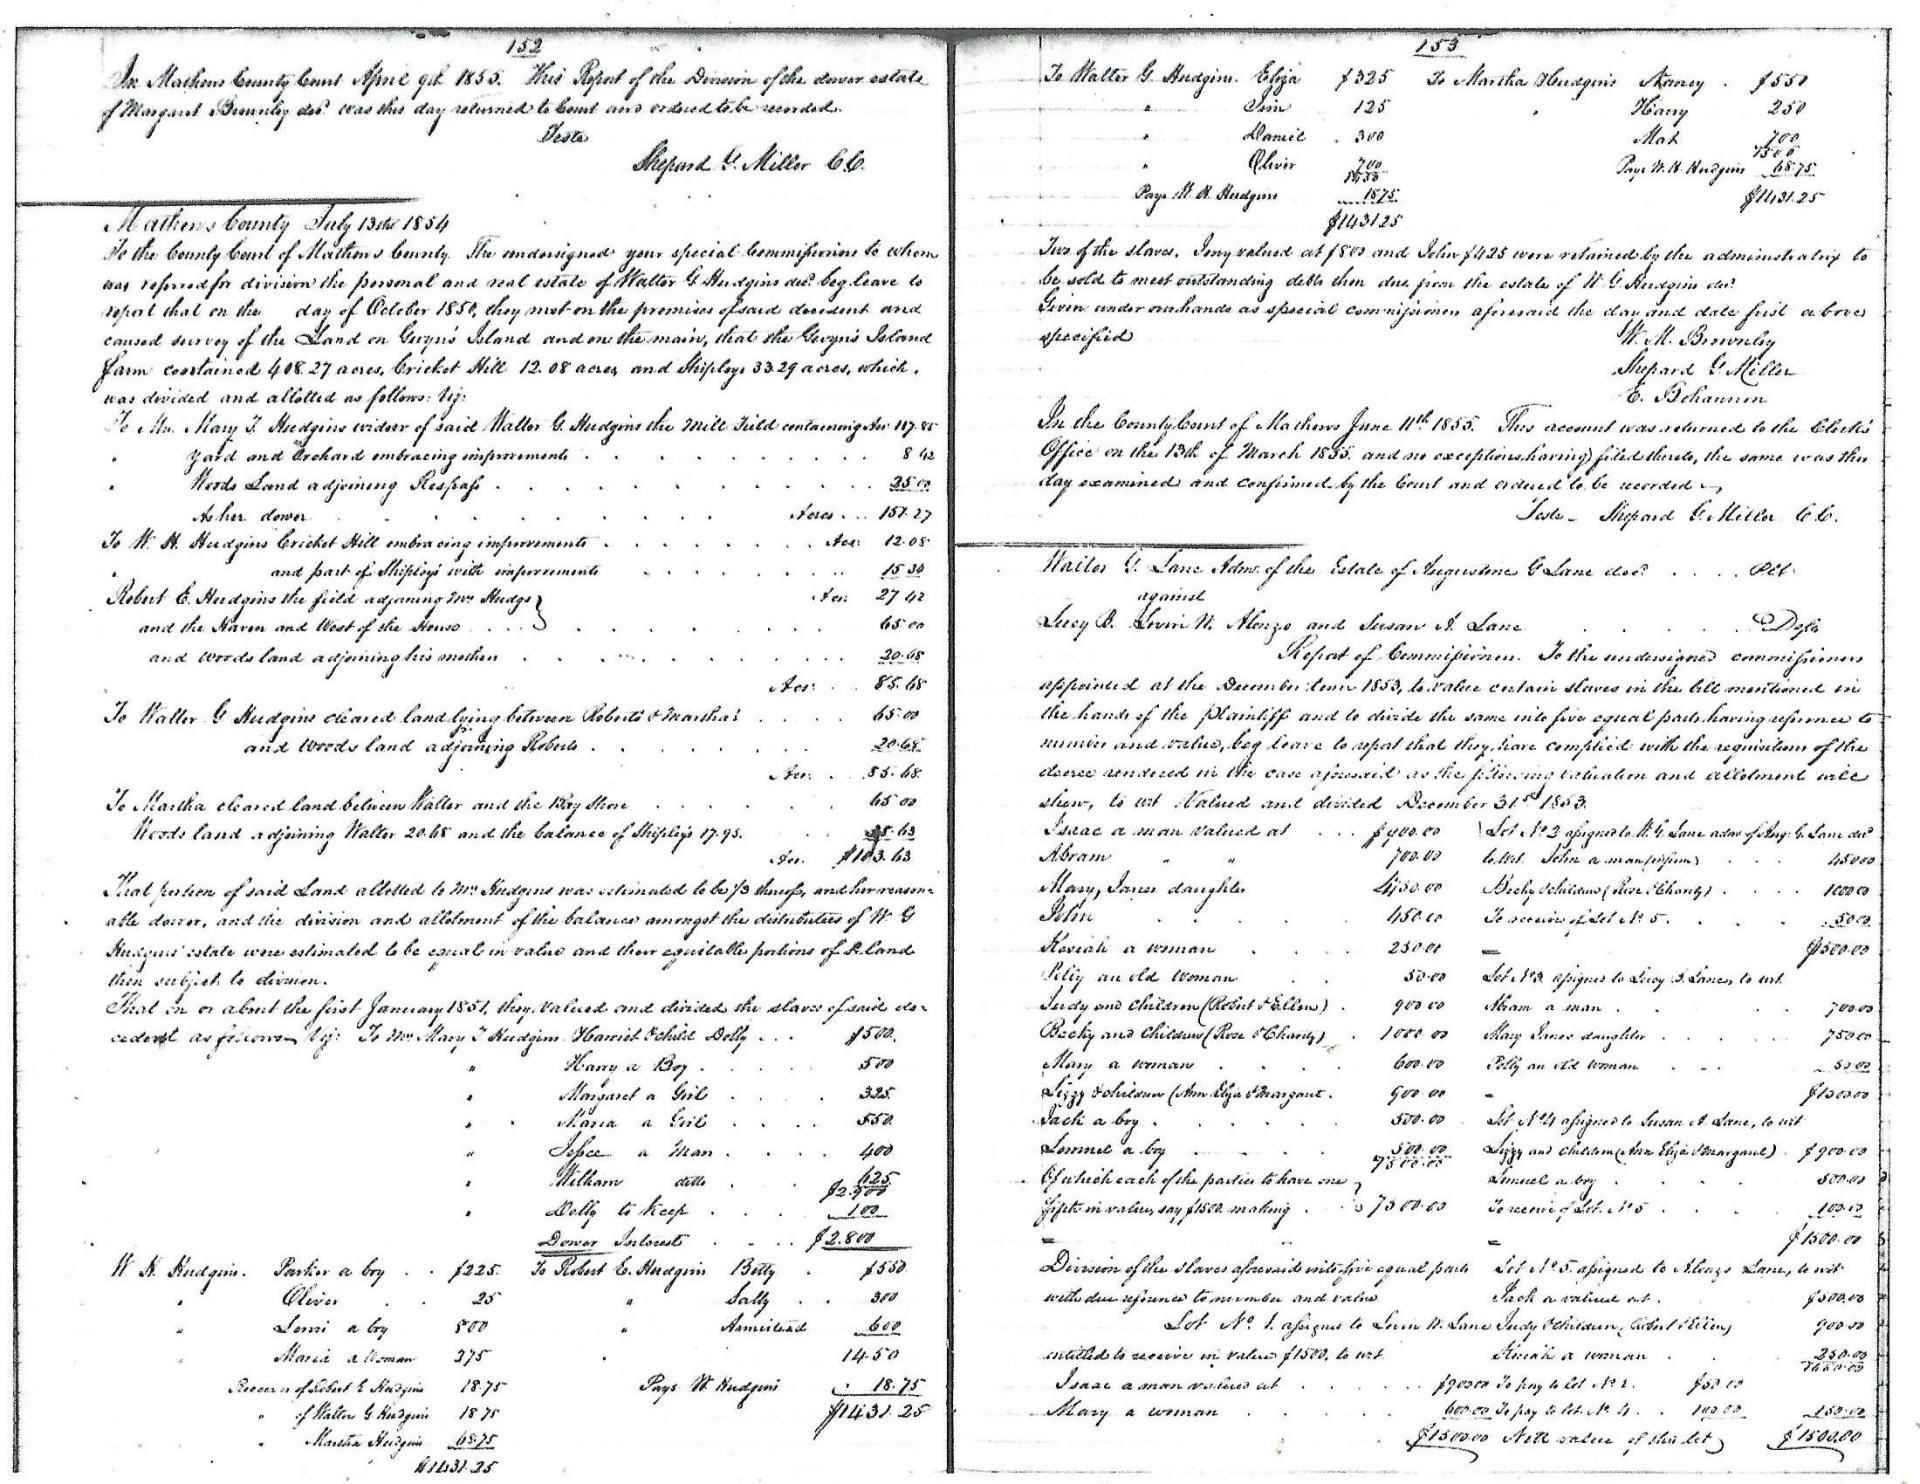 152
In Mathews County Court April 9th 1855. This Report of the Division of the dower estate
of Margaret Brownley decd was this day returned to Court and ordered to be recorded.
Teste
Shepard G. Miller C.C.
Mathews County July 13th 1854
To the County Court of Mathews County. The undersigned your special Commissioners to whom
was referred for division the personal and real estate of Walter G Hudgins decd beg leave to
report that on the day of October 1850, they met on the premises of said decedent and
caused survey of the Land on Gwyn's Island and on the main, that the Gwyn's Island
farm contained 408.27 acres, Cricket Hill 12.08 acres and Shipleys 33.29 acres, which
was divided and allotted as follows: Viz:
To Mrs. Mary T. Hudgins widow of said Walter G. Hudgins the Mill Field containing Acr 117.85
" Yard and Orchard embracing improvements . . . 8 42
" Woods Land adjoining Respass . . . 25 00
As her dower . . . Acres . . 151.27
To W. H. Hudgins Cricket Hill embracing improvements . . . Acr: 12.08
" and part of Shipleys with improvements . . . 15 34
Acr: 27 42
Robert E. Hudgins the field adjoining Mrs Hudgs
and the Haven and West of the House . . . 65 00
and Woods land adjoining his mother . . . 20.68
Acr: . . 85.68
To Walter G Hudgins cleared land lying between Roberts & Martha's . . . 65 00
and Woods land adjoining Roberts . . . 20.68
Acr: . . 85.68
To Martha cleared land between Walter and the Bay Shore . . . 65 00
Woods land adjoining Walter 20.68 and the balance of Shipley's 17.95. . . . 38.63
Acr. $103.63
That portion of said Land allotted to Mrs Hudgins was estimated to be 1/3 thereof, and her reason-
able dower, and the division and allotment of the balance amongst the distributees of W G
Hudgins' estate were estimated to be equal in value and their equitable portions of land
then subject to division.
That on or about the first January 1851, they valued and divided the slaves of said de-
cedent as follows Viz: To Mrs Mary T Hudgins Harriet & child Dolly . . . $500.
" Harry a Boy . . . 500
" Margaret a Girl . . . 325
" Maria a Girl . . . 550
" Jesse a Man . . . 400
" William ditto . . 625
$2.900
" Dolly to keep . . . 100
Dower Interest . . . $2.800
W H Hudgins. Parker a boy . . $225. To Robert E. Hudgins Betty . $550
" Oliver . . 25 " Sally . . 300
" Levi a boy 800 " Armistead 600
" Maria a Woman 375 " 1450
Receives of Robert E Hudgins 18.75 Pays W. Hudgins . 18.75
" of Walter G Hudgins 18 75 $1431.25
" Martha Hudgins 68.75
$1431.25
153
To Walter G. Hudgins. Eliza $325 To Martha Hudgins Nancy . $550
" Jim 125 " Harry 250
" Daniel . 300 Mat 700
1500
" Oliver 700
Pays W. H. Hudgins 68.75
Pays W H Hudgins 1875 $1431.25
$1431 25
Two of the slaves. Tony valued at $800 and John $425 were retained by the administratrix to
be sold to meet outstanding debts then due from the estate of W G Hudgins decd
Given under our hands as special commissioners aforesaid the day and date first above
specified W. M. Brownley
Shepard G. Miller
E. Bohannon
In the County Court of Mathews June 11th 1855. This account was returned to the Clerk's
Office on the 13th of March 1855. and no exceptions having filed thereto, the same was this
day examined and confirmed by the Court and ordered to be recorded
Teste - Shepard G. Miller C.C.
Walter G. Lane Admr of the Estate of Augustine G Lane decd . . . . Plt.
against
Lucy B. Levin W. Alonzo and Susan A. Lane . . . Defts
Report of Commissioners. To the undersigned commissioners
appointed at the December term 1853, to value certain slaves in the bill mentioned in
the hands of the Plaintiff and to divide the same into five equal parts having reference to
number and value, beg leave to report that they have complied with the requisitions of the
decree rendered in the case aforesaid as the following valuation and allotment will
shew, to wit Valued and divided December 31st 1853.
Isaac a man valued at . . . $900.00 Lot No 2 assigned to W. G. Lane admr of Aug. G. Lane decd
Abram " " 700.00 to wit. John a man (infirm) . . . 450 00
Mary, Janes daughter 750.00 Becky & children (Rose & Charity) . . . 1000 00
John . . . 450.00 To receive of Lot No 5. . . . 50 00
Keziah a woman . . . 250 00 $1500.00
Polly an old woman . . 50.00 Lot No 3. assigned to Lucy B. Lane, to wit.
Judy and children (Robert & Ellen) . 900 00 Abram a man . . . 700.00
Becky and children (Rose & Charity) . 1000 00 Mary Janes daughter . . . 750 00
Mary a woman . . . 600.00 Polly an old woman . . . 50 00
Lizzy & children (Ann Eliza & Margaret . 900.00 $1500.00
Jack a boy . . . 500.00 Lot No 4 assigned to Susan A. Lane, to wit
Lemuel a boy . . . 500.00 Lizzy and children (Ann Eliza & Margaret) . $900.00
7500.00
Of which each of the parties to have one Lemuel a boy . . . 500.00
fifth in value, say $1500. making . . 7500.00 To receive of Lot. No 5 . . . 100.00
$1500.00
Division of the slaves aforesaid into five equal parts Lot No 5. assigned to Alonzo Lane, to wit
with due reference to number and value Jack a valued at . $500.00
Lot No. 1. assigned to Levin W. Lane Judy & children, (Robert & Ellen) 900.00
entitled to receive in value $1500, to wit Keziah a woman . . . 250.00
1650.00
Isaac a man valued at . . . $900 00 To pay to Lot No 2. $50 00
Mary a woman . . . 600.00 To pay to lot No 4. . 100.00 150.00
$1500.00 Nett value of this lot $1500.00